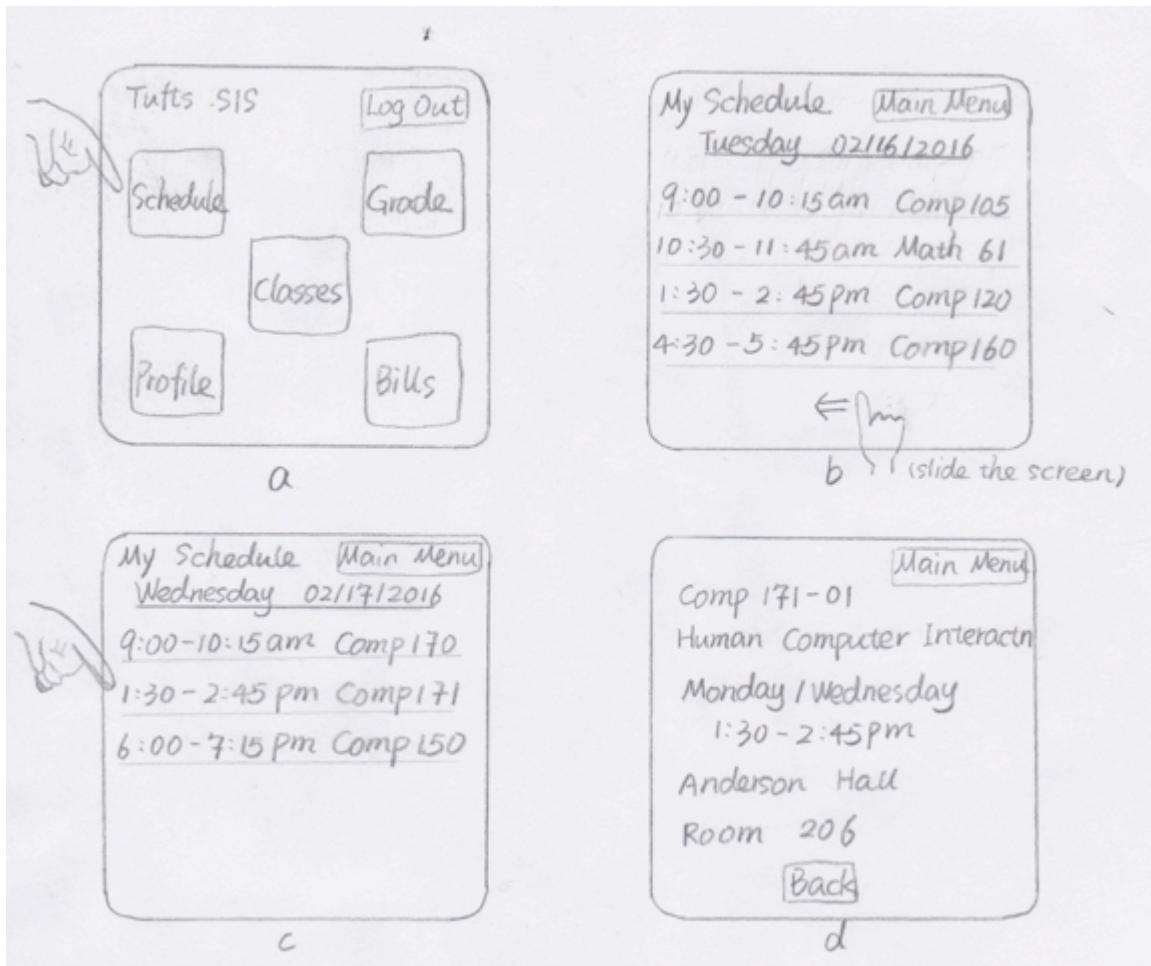 Tufts SIS Log Out
Schedule Grade
Classes
Profile Bills
a
My Schedule Main Menu
Tuesday 02/16/2016
9:00 - 10:15am Comp105
10:30 - 11:45am Math 61
1:30 - 2:45pm Comp120
4:30 - 5:45pm Comp160
⇐
b (slide the screen)
My Schedule Main Menu
Wednesday 02/17/2016
9:00-10:15am Comp170
1:30-2:45pm Comp171
6:00-7:15pm Comp150
c
Main Menu
Comp 171-01
Human Computer Interactn
Monday/Wednesday
1:30-2:45pm
Anderson Hall
Room 206
Back
d